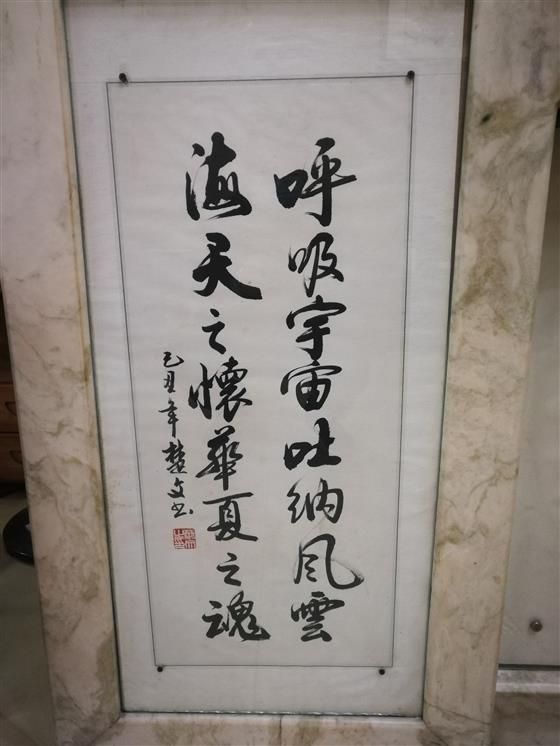 呼吸宇宙吐纳风雲
海天之懷華夏之魂
己丑年楚文书